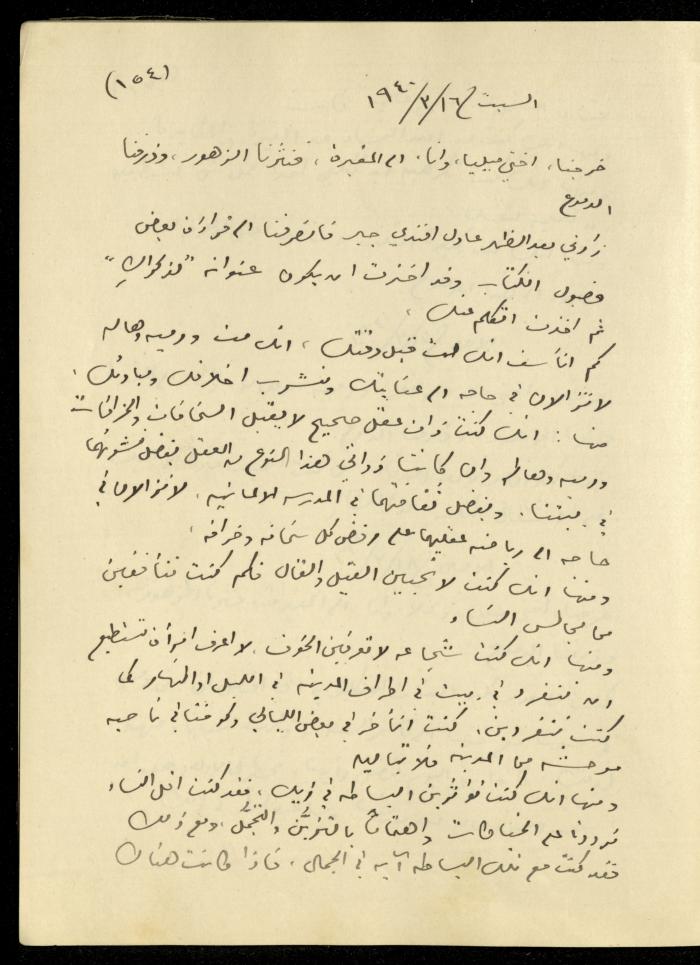 (١٥٤)
السبت ١٦/٣/١٩٤٠
خرجنا، اختي ميليا، وانا، الى المقبرة، فنثرنا الزهور، وذرفنا
الدموع
زارني بعد الظهر عادل افندي جبر فانصرفنا الى قراءة بعض
فصول الكتاب وقد اخترت ان يكون عنوانه "لذكراكِ"
ثم اخذت اتكلم عنك،
كم اتأسف انك متِ قبل وقتك، انك متِ ودميه وهاله
لا تزالان في حاجه الى عنايتك وتشرب اخلاقك ومبادئك.
منها: انك كنتِ ذات عقل صحيح لا يقبل السخافات والخرافات
ودميه وهاله وان كانتا ذواتي هذا النوع من العقل بفضل نشوئهما
في بيتنا، وبفضل ثقافتهما في المدرسه الالمانيه، لا تزالان في
حاجه الى رياضه عقليهما على رفض كل سخافه وخرافه.
ومنها انك كنتِ لا تحبين القيل والقال فكم كنت تتأففين
من مجالس النساء
ومنها انك كنت شجاعه لا تعرفين الخوف، لا اعرف امرأة تستطيع
ان تنفرد في بيت في اطراف المدينه في الليل او النهار كما
كنت تنفردين. كنت اتأخر في بعض الليالي وكرمتنا في ناحيه
موحشه من المدينه فلا تباليه
ومنها انك كنت تؤثرين البساطه في زيك، فقد كنت اقل النساء
ترددا على الخياطات واهتماما بالتزيّن والتجمّل، ومع ذلك
فقد كنتِ مع تلك البساطه آيه في الجمال، فاذا كانت هناك